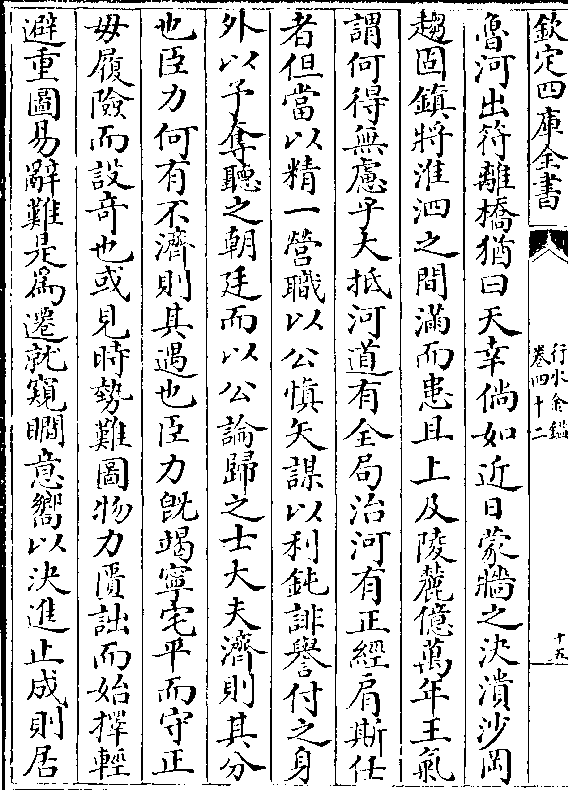 欽定四庫全書
行水金鑑
卷四十二
十五
魯河出符離橋猶曰天幸倘如近日蒙牆之決潰沙岡
趨固鎮將淮泗之間滿而患且上及陵麓億萬年王氣
謂何得無慮乎大抵河道有全局治河有正經肩斯任
者但當以精一營職以公愼矢謀以利鈍誹譽付之身
外以予奪聽之朝廷而以公論歸之士大夫濟則其分
也臣力何有不濟則其遇也臣力旣竭寧宅平而守正
毋履險而設奇也或見時勢難圖物力匱詘而始擇輕
避重圖易辭難是爲遷就窺瞷意嚮以決進止成則居